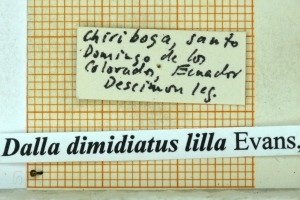 Chiriboga, santo
Domingo de los
Colorados, Ecuador
Descimon leg.
Dalla dimidiatus lilla Evans,